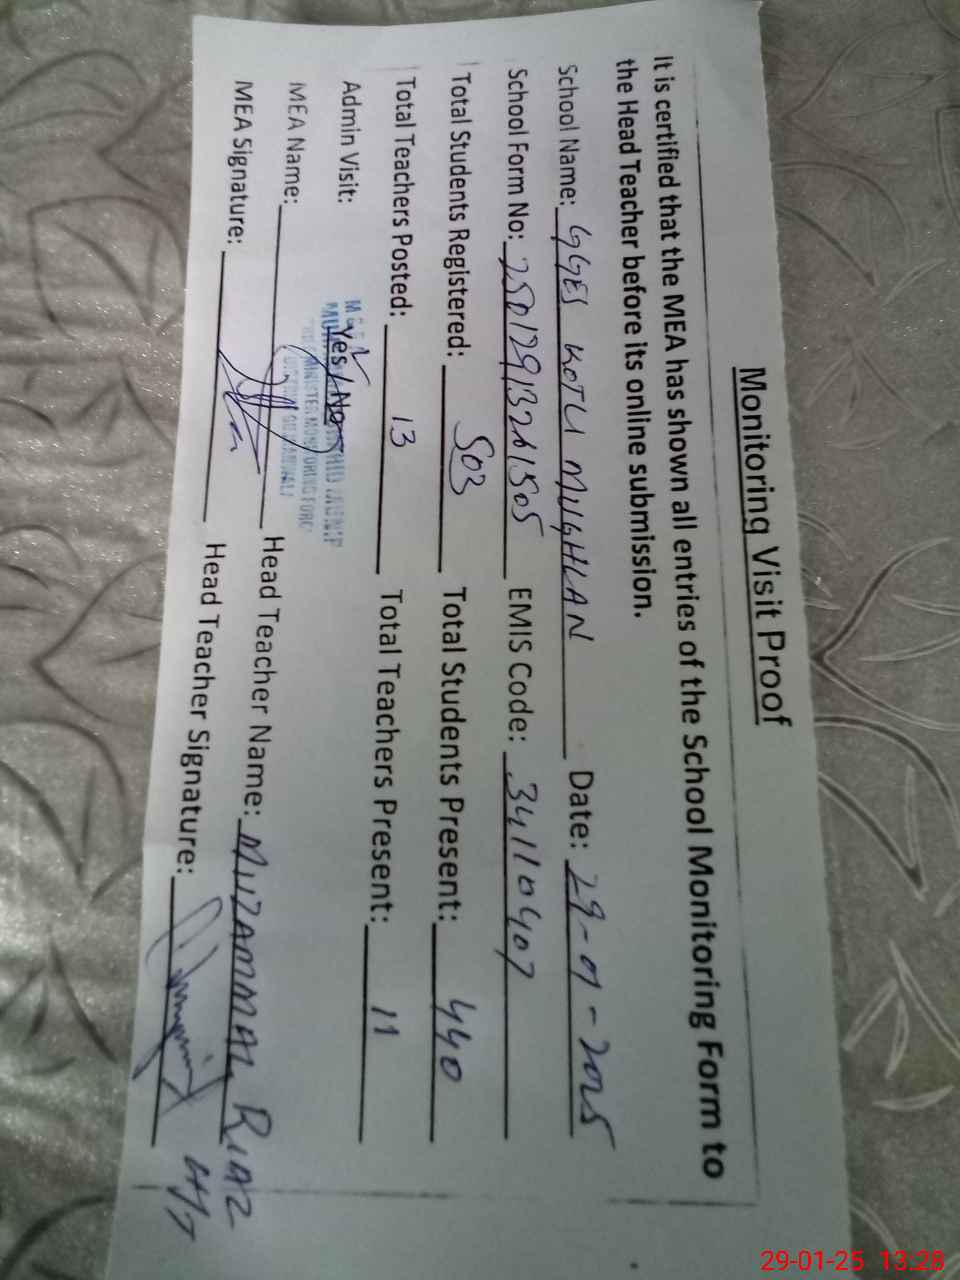 Monitoring Visit Proof
It is certified that the MEA has shown all entries of the School Monitoring Form to
the Head Teacher before its online submission.
School Name: GGES KOTLI MUGHLAN Date: 29-01-2025
School Form No: 25012913261505 EMIS Code: 34110407
Total Students Registered: 503 Total Students Present: 440
Total Teachers Posted: 13 Total Teachers Present: 11
Admin Visit: Yes / No
MEA Name: Head Teacher Name: MUZAMMAL RIAZ
MEA Signature: Head Teacher Signature:
MINISTER MONITORING FORC
29-01-25 13:28